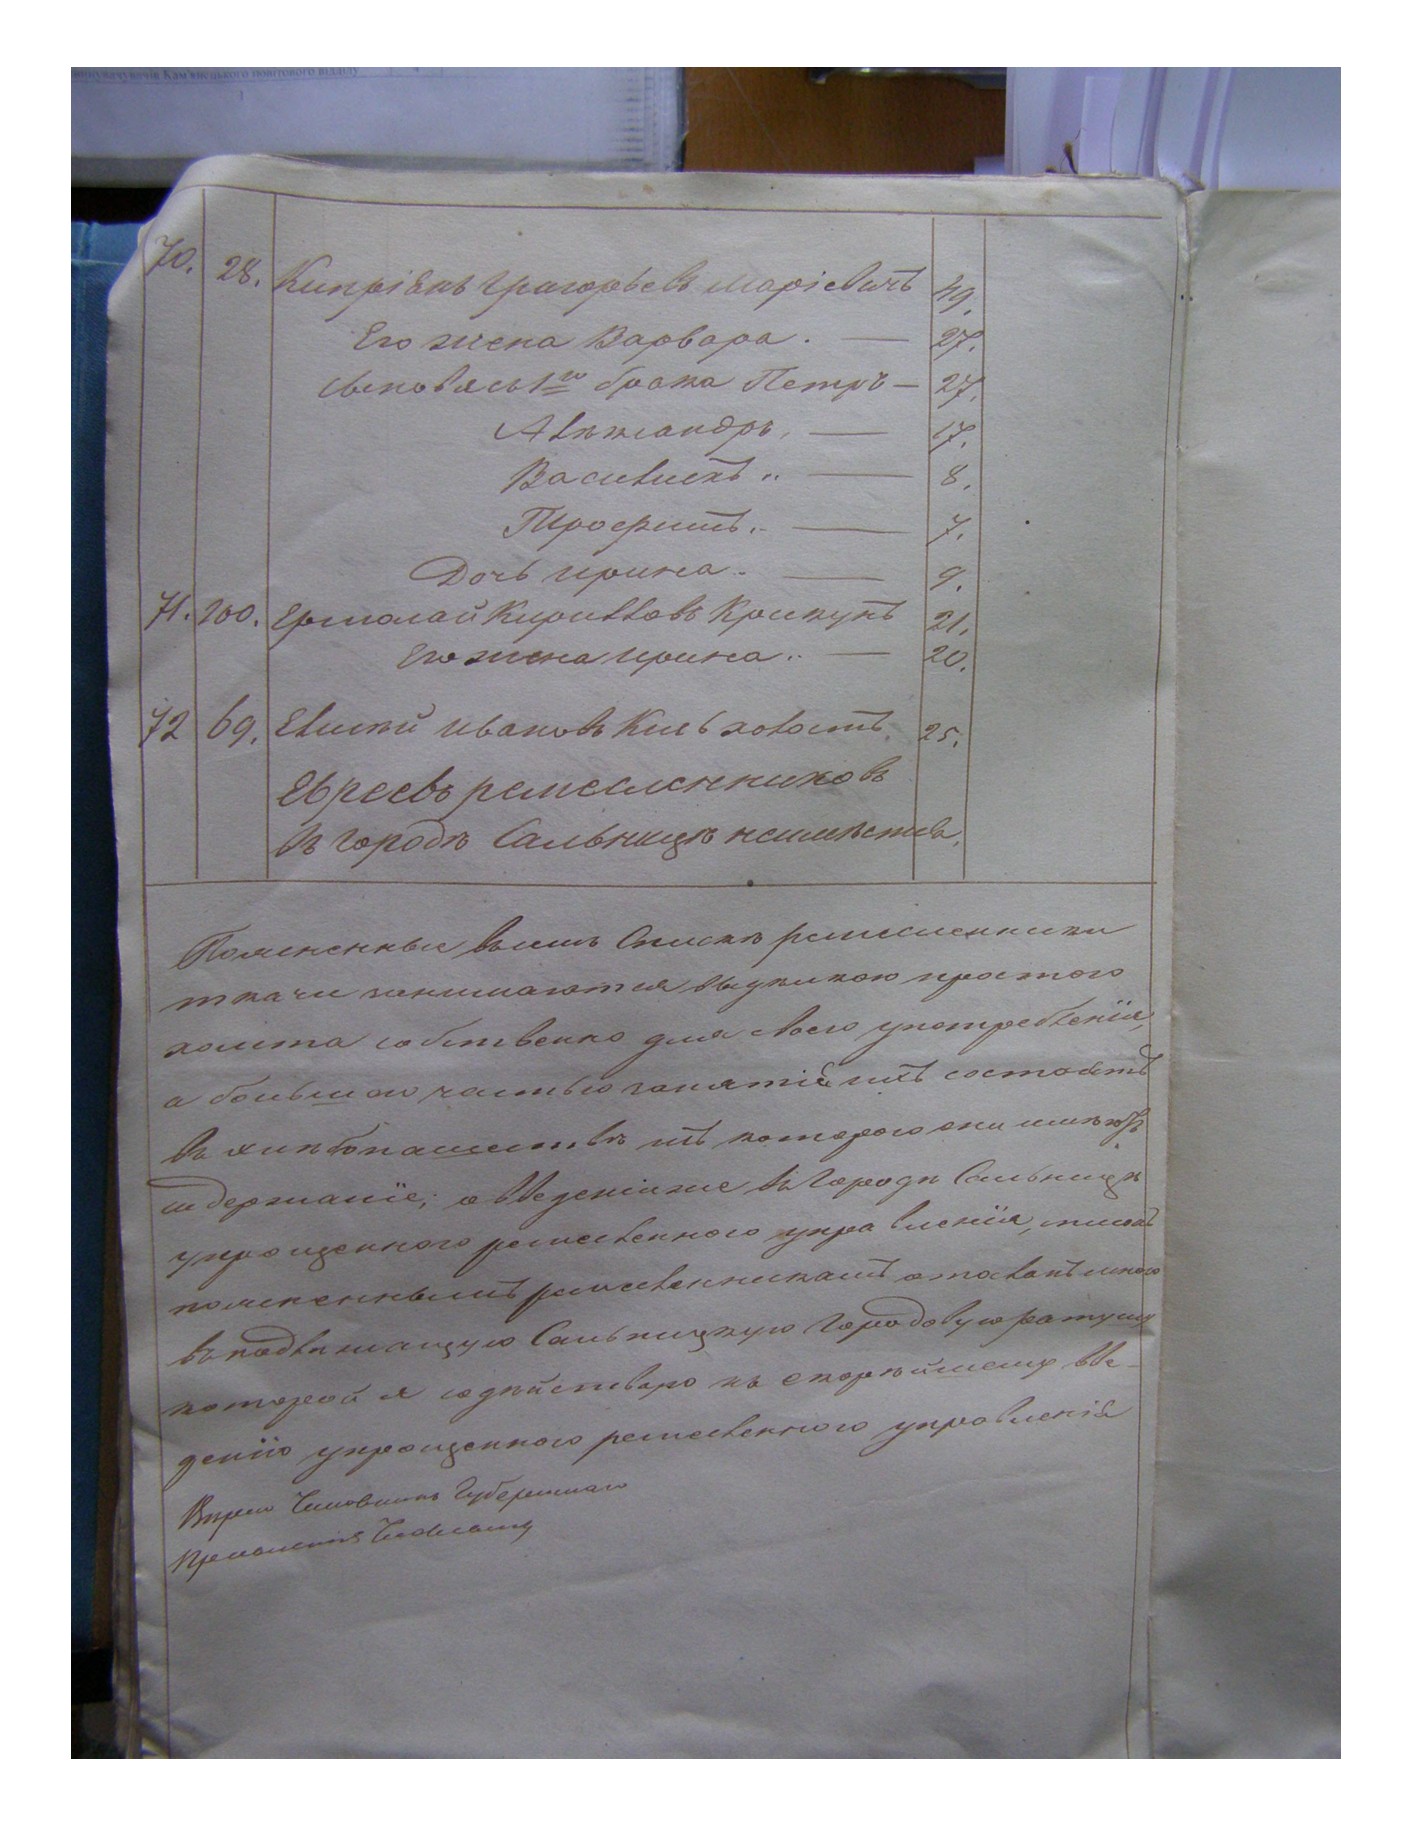 вишукувачів Кам'янецького повітового відділу
70. 28. Кипріянъ Григорьевъ Маріевичъ 49.
Его жена Варвара. — 27.
Сыновья съ 1го брака Петръ — 27.
Александръ. — 17.
Василискъ „ — 8.
Трофимъ. — 7.
Дочь Ирина. — 9.
71. 100. Ермолай Кириловъ Крикунъ 21.
Его жена Ирина.. — 20.
72 69. Евтей Ивановъ Кисьховостъ. 25.
Евреевъ ремесленниковъ
въ городѣ Сальницѣ неимѣется.
Поясненные въ семъ Спискѣ ремесленники
ткачи занимаются выдѣлкою простого
холста собственно для своего употребленія,
а большою частью занятія ихъ состоятъ
въ хлѣбопашествѣ изъ которого они имѣютъ
содержаніе; о введеніи же въ Городѣ Сальницѣ
упрощенного ремесленного управленія,
поясненнымъ ремесленникамъ
въ подлежащую Сальницкую Городовую ратушу
которой я содѣйствую къ скорѣйшему вве-
денію упрощенного ремесленного управленія
Вѣрно Чиновникъ Губернскаго
Правленія